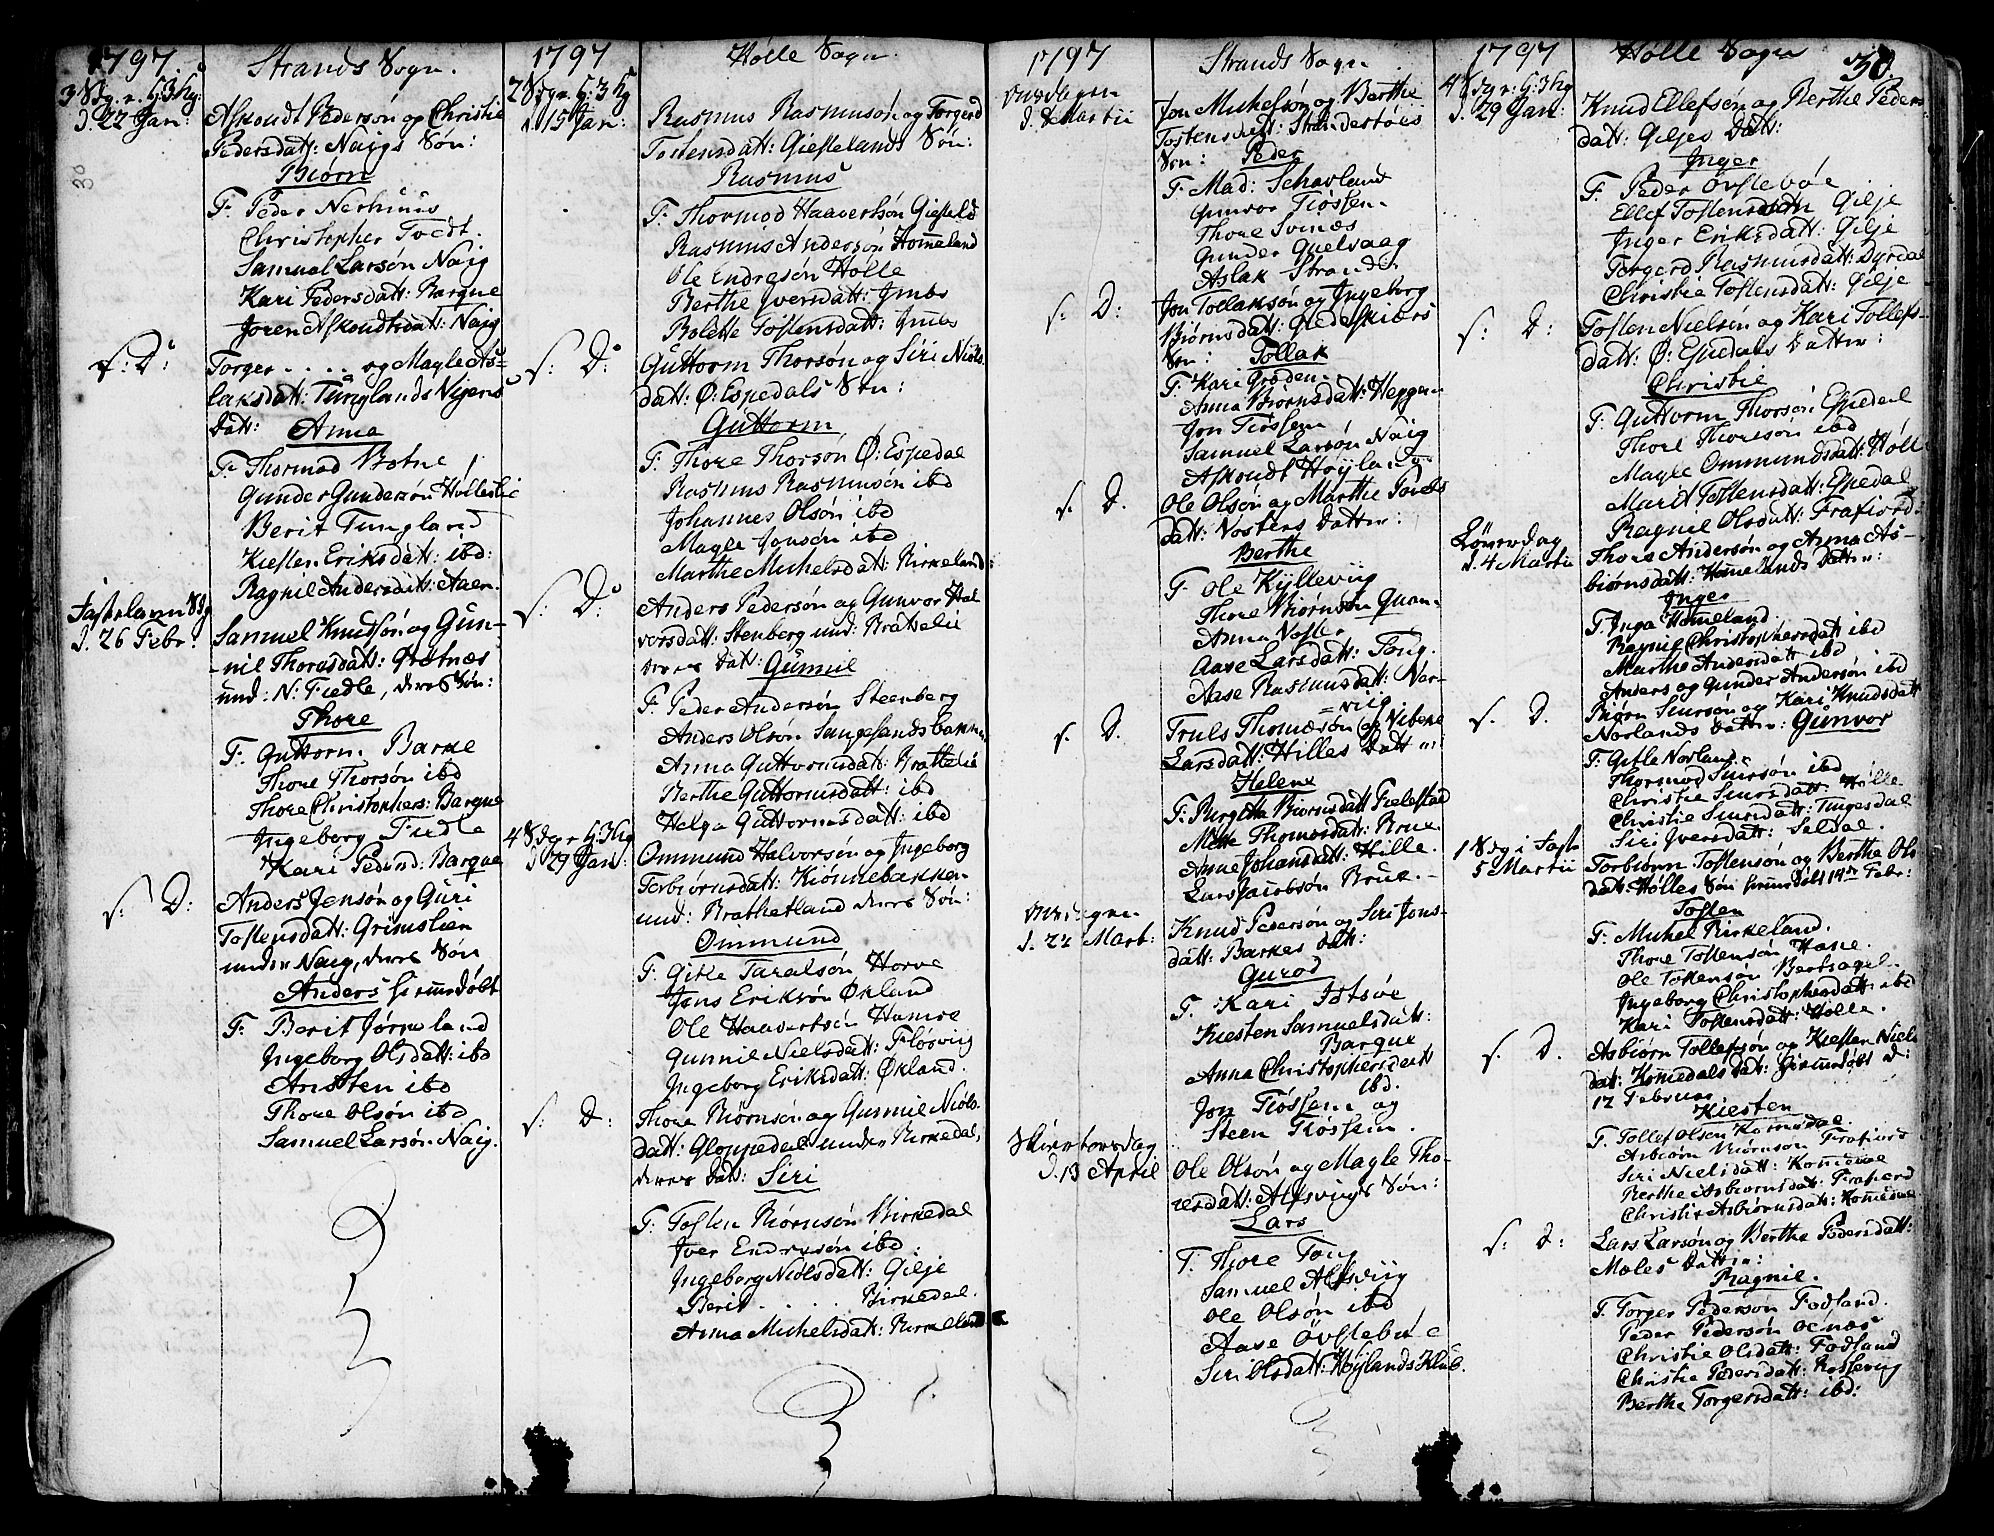 1797.
Strands Sogn.
3 Sdg. e. H: 3 Kg:
d. 22 Jan:
Askoudt Pedersøn og Christie
Pedersdatt: Naigs Søn:
Biørn
F. Peder Nerhuus
Christopher Toedt.
Samuel Larsøn Naig
Kari Pedersdatt: Barque
Joren Askoudtsdatt: Naig
s: D:
Torger .... og Magle As-
laksdatt: Tunglands
Datt: Anna
F. Thormod Botne
Gunder Gundersøn Hølleslie
Berit Tungland
Kiesten Eriksdatt: ibd:
Ragnil Andersdatt: Aaen.
Fastelavn Sdg
d. 26 Febr:
Samuel Knudsøn og Gun-
nil Thoresdatt: Grøtnæs
und: N: Fiedle, deres Søn:
Thore
F. Guttorm Barke
Thore Thorsøn ibd
Thore Christophers: Barque
Ingeborg Fiedle
Kari Peders: Barque
s: D:
Anders Jensøn og Guri
Tostensdatt: Grimslien
under Naig, deres Søn
Anders hiemmedøbt
F. Berit Jørpeland
Ingeborg Olsdatt: ibd
Aristen ibd
Thore Olsøn ibd
Samuel Larsøn Naig.
30
1797
Hølle Sogn.
2 Sdg e. H: 3 Kg
d. 15 Jan:
Rasmus Rasmusøn og Torgerd
Tostensdatt: Gieslelands Søn:
Rasmus
F. Thormod Haavertsøn Giesteld
Rasmus Andersøn Hommeland
Ole Endresøn Hølle
Berthe Iversdatt: Imbs
Bolette Tostensdatt: Imbs
s: D:
Guttorm Thorsøn og Siri Niels
datt: Ø: Espedals Søn:
Guttorm
F. Thore Thorsøn Ø: Espedal
Rasmus Rasmusøn ibd
Johannes Olsøn ibd
Magle Jonsøn ibd
Marthe Michelsdatt: Birkeland:
s: D:
Anders Pedersøn og Gunvor Hal
vorsdatt: Stenberg und: Bratelie
deres Datt: Gunnil
F. Peder Andersøn Steenberg
Anders Olsøn Sungesandsbakken
Anna Guttormsdatt: Brattelie
Berthe Guttormsdatt: ibd
Helga Guttormsdatt: ibd
4 Sdg e. H: 3 Kg
d. 29 Jan:
Ommund Halvorsøn og Ingeborg
Torbiornsdatt: Kiønnebakken
und: Brathetland deres Søn:
Ommund
F. Gitle Taralsøn Horve
Jens Eriksøn Økland
Ole Haavertsøn Hamre
Gunnil Nielsdatt: Fløsviig
Ingeborg Eriksdatt: Økland.
s: D:
Thore Biørnsøn og Gunnil Niels-
datt: Gloppedal under Birkedal,
deres Datt: Siri
F. Tosten Biørnsøn Birkedal
Iver Endresøn ibd.
Ingeborg Nielsdatt: Gilje
Berit .... Birkedal.
Anna Michelsdatt: Birkeland
1797
Strands Sogn
d. 8 Martii
Jon Michelsøn og Berthe
Tostensdatt: Strandestøes
Søn: Peder
F. Mad: Schavland
Gunvor Tiossem
Thore Svines
Gunder Quelvaag
Aslak Strande
s: D:
Jon Tollaksøn og Ingeborg
Biørnsdatt:
Søn: Tollak
F. Kari Groden
Anna Biørnsdatt: Heggem
Jon Tiossem
Samuel Larsøn Naig
Askoudt Høyland
s. D.
Ole Olsøn og Marthe
datt: Nostens Datter:
Berthe
F. Ole Kylleviig
Thore Biørnsøn
Anna
Aase Larsdatt: Tong.
Aase Rasmusdatt: Nor-
=viig
s. D.
Truls Thomæsøn og Vibeke
Larsdatt: Hilles Datter
Helene
F. Birgitha Biornsdatt Fielestad
Mette Thomæsdatt: Brue.
Anne Johansdatt: Hille.
Lars Jacobsøn Brue.
d. 22 Mart:
Knud Pedersøn og Siri Jons-
datt: Barkes datt:
Gurod
F. Kari Idsøe
Kiesten Samuelsdatt:
Barque
Anna Christophersdatt
ibd.
Jon Tiossem og
Steen Tiossem.
Skiertorsdag
d. 13 April
Ole Olsøn og Magle Tho-
resdatt: Alfsviigs Søn:
Lars
F. Thore Tong
Samuel Alfsviig
Ole Olsøn ibd
Aase Øvstebøe
Siri Olsdatt: Høylands Klub.
1797
Hølle Sogn
30.
4 Sdg e: H: 3 Kg
d. 29 Jan:
Knud Ellefsøn og Berthe Peders
datt: Giljes Datt:
Inger
F. Peder Øvstebøe
Ellef Tostensøn Gilje
Inger Eriksdatt: Gilje
Torgerd Rasmusdatt: Dyrdal
Christie Tostensdatt: Gilje
s: D:
Tosten Nielsøn og Kari Tollefs-
datt: Ø: Espedals Datter:
Christie
F. Guttorm Thorsøn Espedal
Thore Thoresøn ibd
Magle Ommundsdatt: Høll
Marit Tostensdatt: Espedal
Ragnil Olsdatt: Frafiord
Løverdag
d. 4 Martii
Thore Andersøn og Anna As-
biørnsdatt: Hommelands Datter:
Inger
F. Inga Hommeland
Ragnil Christophersdatt ibd
Marthe Andersdatt ibd
Anders og Gunder Andersøn ibd
s. D.
Biørn Siursøn og Kari Knudsdatt
Norlands Datter: Gunvor
F. Gitle Norland
Thormod Siursøn ibd
Christie Siursdatt Hølle
Christie Siursdatt: Tungesdal
Siri Iversdatt: Seldal.
1 Sdg i Fast
5 Martii
Torbiørn Tostensøn og Berthe Ols
datt: Hølles Søn hiemdøbt 19de Febr:
Tosten
F. Michel Birkeland.
Thore Tostensøn Hane.
Ole Tostensøn Bertsagel.
Ingeborg Christophersdatt ibd
Kari Tostensdatt: Hølle.
s. D.
Asbiørn Tollefsøn og Kiesten Niels
datt: Kommedals Datt: hiemmdøbt d:
12 Februar.
Kiesten
F. Tollef Olsen Komedal.
Asbiørn Biørnsøn Frafiord
Siri Nielsdatt: Komedal
Berthe Asbiornsdatt: Frafiord
Christie Asbiornsdatt: Komedal
s. D:
Lars Larsøn og Berthe Pedersdatt:
Moles Datter:
Ragnil.
F. Torger Pedersøn Fosland.
Peder Pedersøn Ocnæs
Christie Olsdatt: Fosland
Christie Pedersdatt: Rosseviig
Berthe Torgersdatt: ibd: